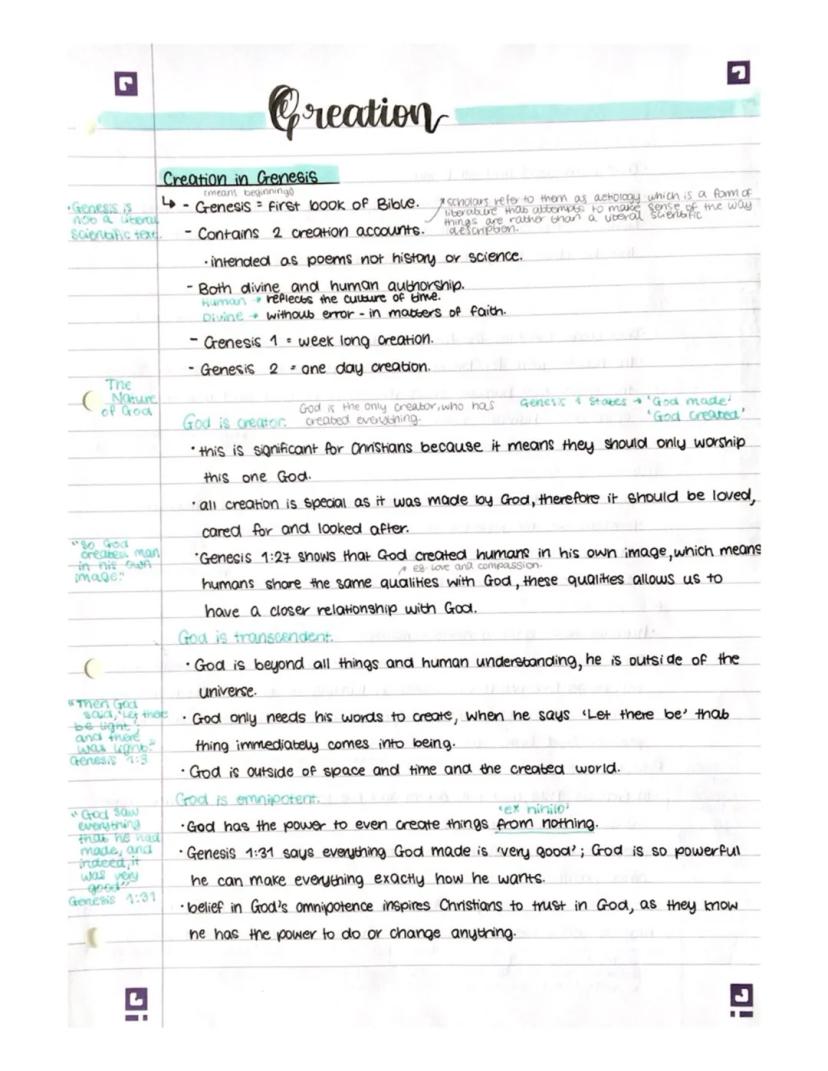 Creation
Creation in Genesis
(means beginning)
↳ - Genesis = first book of Bible.
*scholars refer to them as aetiology which is a form of
literature that attempts to make sense of the way
things are rather than a literal scientific
description.
•Genesis is
not a literal
scientific text.
- Contains 2 creation accounts.
• intended as poems not history or science.
- Both divine and human authorship.
Human → reflects the culture of time.
Divine → without error - in matters of faith.
- Genesis 1 = week long creation.
- Genesis 2 = one day creation.
The
Nature
of God
God is creator.
God is the only creator, who has
created everything.
Genesis 1 States → 'God made'
'God created'
• this is significant for Christians because it means they should only worship
this one God.
• all creation is special as it was made by God, therefore it should be loved,
cared for and looked after.
"so God
created man
in his own
image."
• Genesis 1:27 shows that God created humans in his own image, which means
eg. love and compassion.
humans share the same qualities with God, these qualities allows us to
have a closer relationship with God.
God is transcendent.
• God is beyond all things and human understanding, he is outside of the
universe.
"Then God
said, 'Let there
be light',
and there
was light."
Genesis 1:3
• God only needs his words to create, when he says 'Let there be' that
thing immediately comes into being.
• God is outside of space and time and the created world.
God is omnipotent.
'ex nihilo'
"God saw
everything
that he had
made, and
indeed, it
was very
good"
Genesis 1:31
• God has the power to even create things from nothing.
• Genesis 1:31 says everything God made is 'very good'; God is so powerful
he can make everything exactly how he wants.
• belief in God's omnipotence inspires Christians to trust in God, as they know
he has the power to do or change anything.